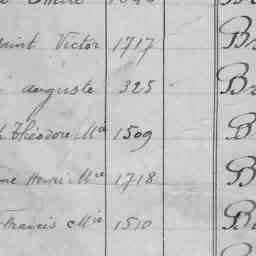 Victor 1717 Br
auguste 325 Br
Théodore Mie 1509 B
Henri Mie 1718 B
Francis Mie 1510 B